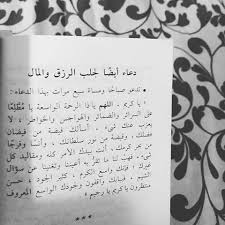 دعاء أيضًا لجلب الرزق والمال
• تدعو صباحًا ومساءً سبع مرات بهذا الدعاء:
« يا كريم ، اللهم يا ذا الرحمة الواسعة يا مُطَّلِعًا
على السرائر والضمائر والهواجس والخواطر ، لا
يعزب عنك شيء ، أسألك فيضة من فيضان
فضلك ، وقبضة من نور سلطانك ، وأُنسًا وفرجًا
من بحر كرمك ، أنت بيدك الأمر كله ومقاليد كل
شيء ، فهب لنا ما تقرّ به أعيننا وتغنينا عن سؤال
غيرنا ، فإنك واسع الكرم ، كثير الجود ، حسن
الشيم ، فببابك واقفون ولجودك الواسع المعروف
منتظرون يا كريم يا رحيم »
***